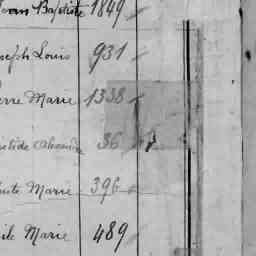 Jean Baptiste 1849
Joseph Louis 931
Pierre Marie 1338
Alexandre 36
Marie 396
Marie 489